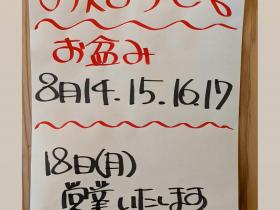 お盆み
8月14.15.16.17
18日(月)
営業いたします